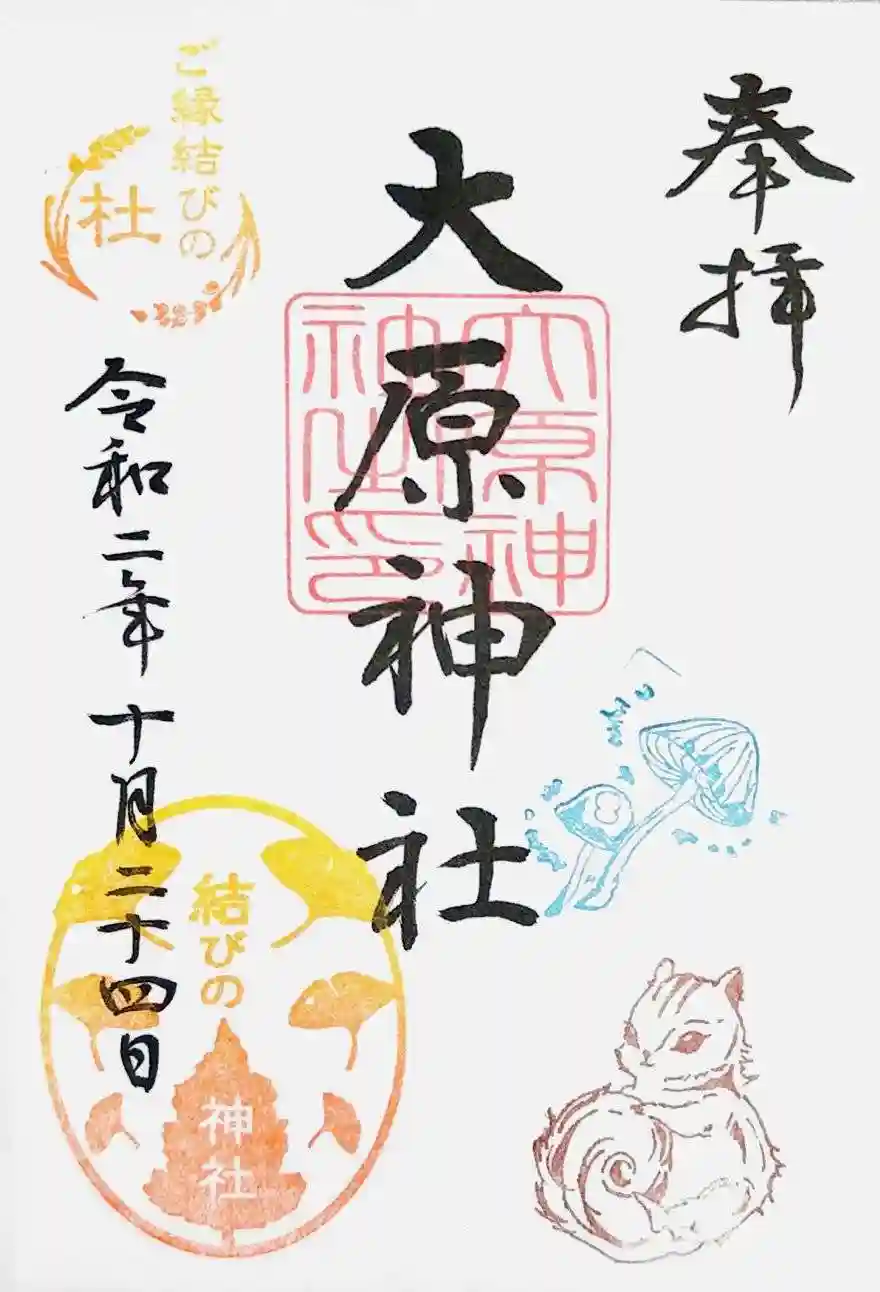 奉拝
大原神社
大原神
社之印
ご縁結びの
杜
令和二年十月二十四日
結びの
神社